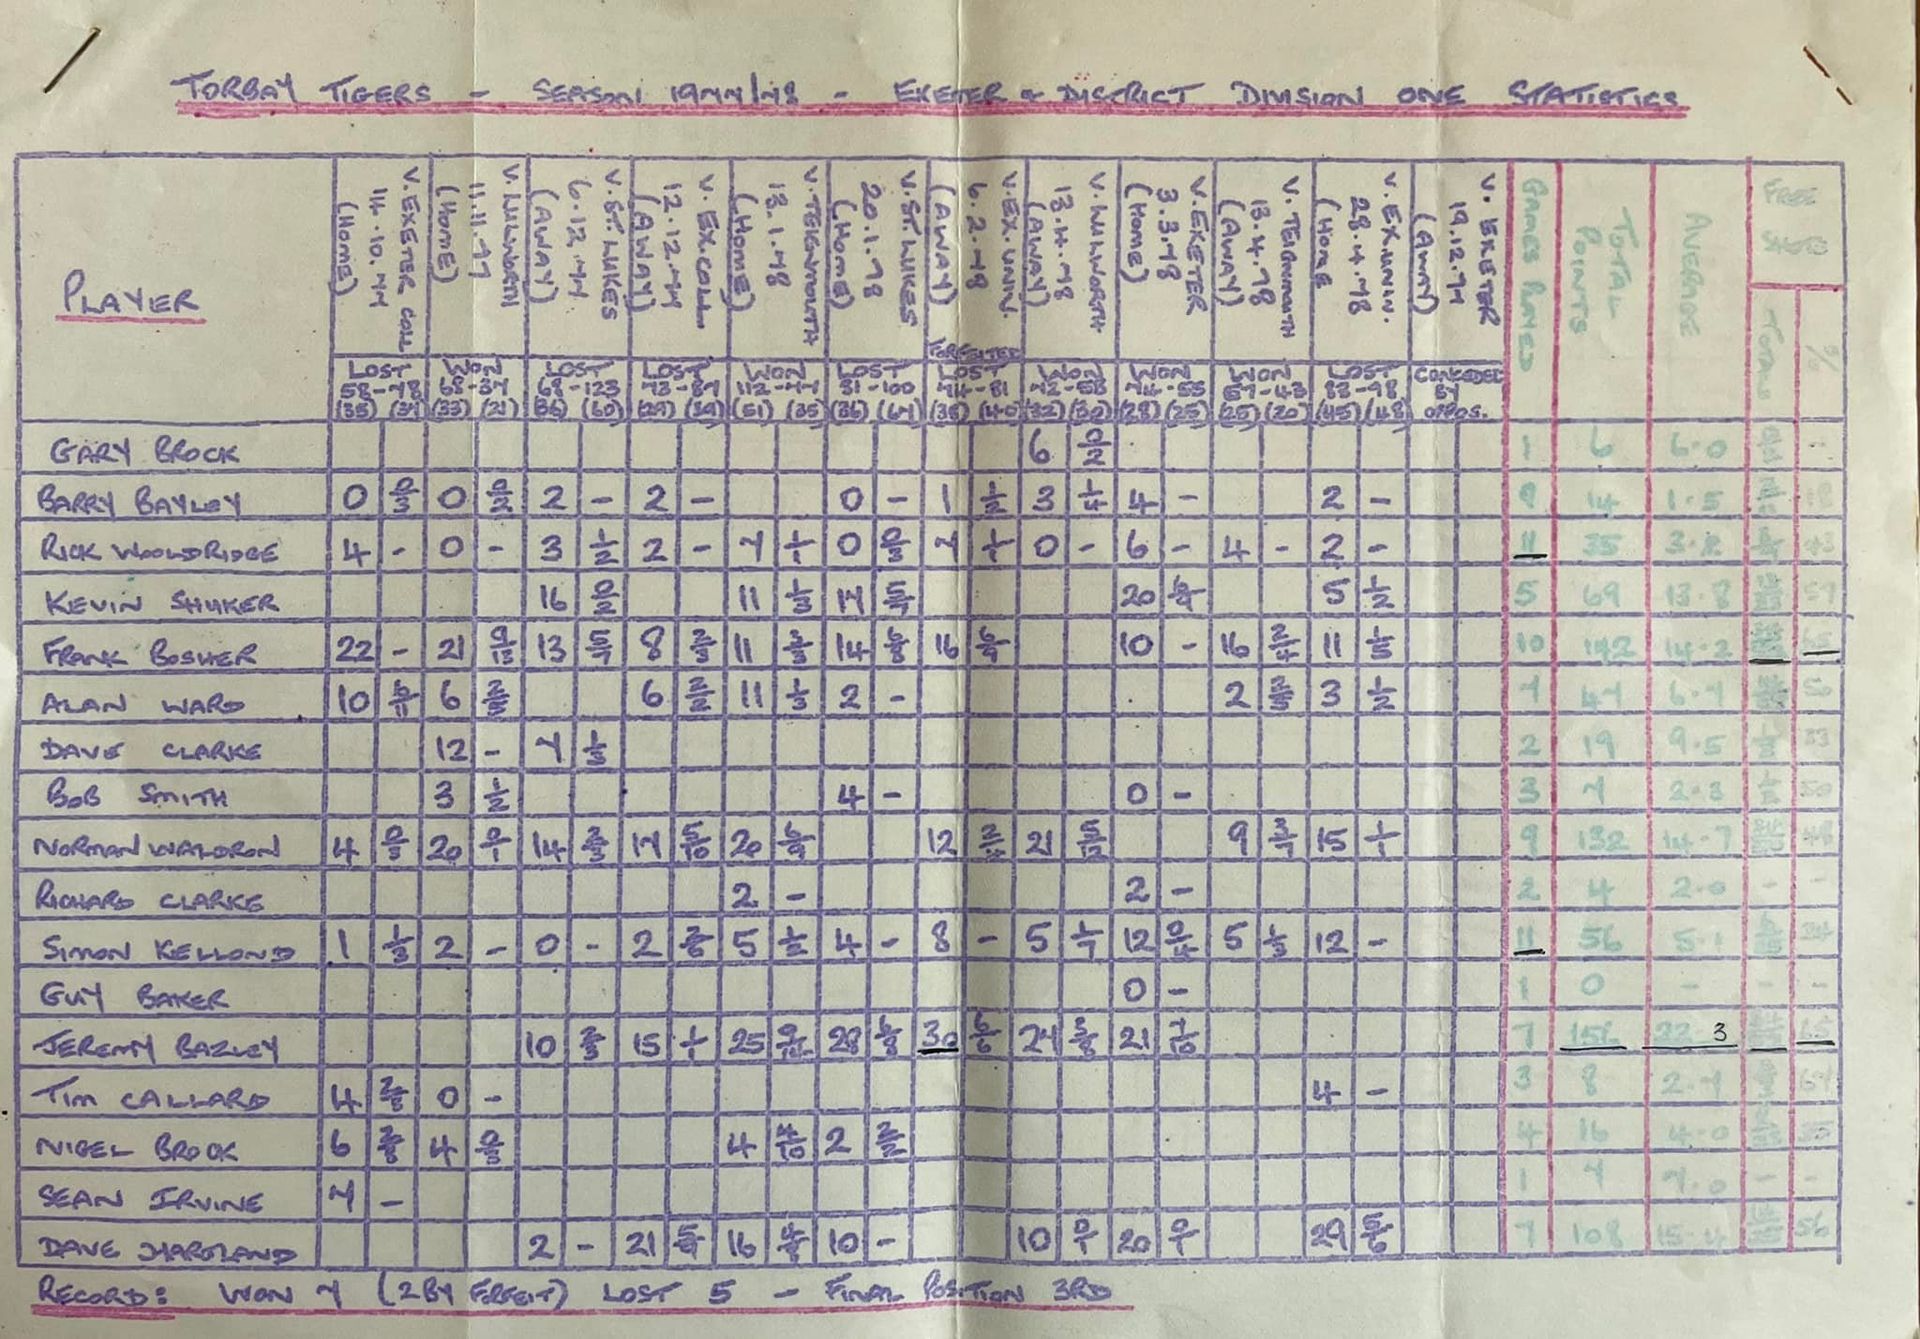 TORBAY TIGERS - SEASON 1977/78 - EXETER & DISTRICT DIVISION ONE STATISTICS
PLAYER
V. EXETER COLL 14.10.77 (HOME)
V. WILWORTH 11.11.77 (HOME)
V. ST. LUKES 6.12.77 (AWAY)
V. EX. COLL. 12.12.77 (AWAY)
V. TEIGNMOUTH 13.1.78 (HOME)
V. ST. LUKES 20.1.78 (HOME)
V. EX. UNIV. 6.2.78 (AWAY)
V. WILWORTH 13.4.78 (AWAY)
V. EXETER 3.3.78 (HOME)
V. TEIGNMOUTH 13.4.78 (AWAY)
V. EX. UNIV. 28.4.78 (HOME
V. EXETER 19.12.77 (AWAY)
GAMES PLAYED
TOTAL POINTS
AVERAGE
FREE
TOTALS
%
FORFEITED
LOST WON LOST LOST WON LOST LOST WON WON WON LOST CONCEDED
58-78 68-37 68-123 73-87 112-77 81-100 74-81 72-58 74-55 57-43 83-98 BY
(35) (37) (33) (21) (36) (60) (29) (39) (51) (35) (36) (64) (35) (40) (32) (30) (28) (25) (25) (20) (45) (48) OPPOS.
GARY BROCK 6 0/2 1 6 6.0 -
BARRY BAYLEY 0 0/3 0 0/2 2 - 2 - 0 - 1 1/2 3 1/4 4 - 2 - 9 14 1.5 18
RICK WOOLDRIDGE 4 - 0 - 3 1/2 2 - 7 1/1 0 0/3 7 1/1 0 - 6 - 4 - 2 - 11 35 3.2 43
KEVIN SHUKER 16 0/2 11 1/3 17 5/7 20 5 1/2 5 69 13.8
FRANK BOSHER 22 - 21 9/13 13 5/7 8 2/3 11 3/3 14 6/8 16 6/7 10 - 16 2/4 11 1/3 10 142 14.2
ALAN WARD 10 6/11 6 2/3 6 2/2 11 1/3 2 - 2 2/3 3 1/2 7 47 6.7 50
DAVE CLARKE 12 - 7 1/3 2 19 9.5 1/3 33
BOB SMITH 3 1/2 4 - 0 - 3 7 2.3 1/2 50
NORMAN WALDRON 4 0/3 20 0/1 14 2/3 17 5/10 20 6/9 12 21 5/12 9 3/7 15 1/1 9 132 14.7 48
RICHARD CLARKE 2 - 2 - 2 4 2.0 - -
SIMON KELLOND 1 1/3 2 - 0 - 2 2/6 5 1/2 4 - 8 - 5 1/7 12 0/4 5 1/3 12 - 11 56 5.1
GUY BAKER 0 - 1 0 - - -
JEREMY BAZLEY 10 2/3 15 1/1 25 28 6/8 30 6/6 24 21 7/10 7 156 22.3 65
TIM CALLARD 4 2/3 0 - 4 - 3 8 2.7 67
NIGEL BROCK 6 2/8 4 0/3 4 4/10 2 2/2 4 16 4.0
SEAN IRVINE 7 - 1 7 7.0 - -
DAVE HARTLAND 2 - 21 5/9 16 4/8 10 - 10 0/1 20 0/1 29 5/6 7 108 15.4 56
RECORD: WON 7 (2 BY FORFEIT) LOST 5 - FINAL POSITION 3RD